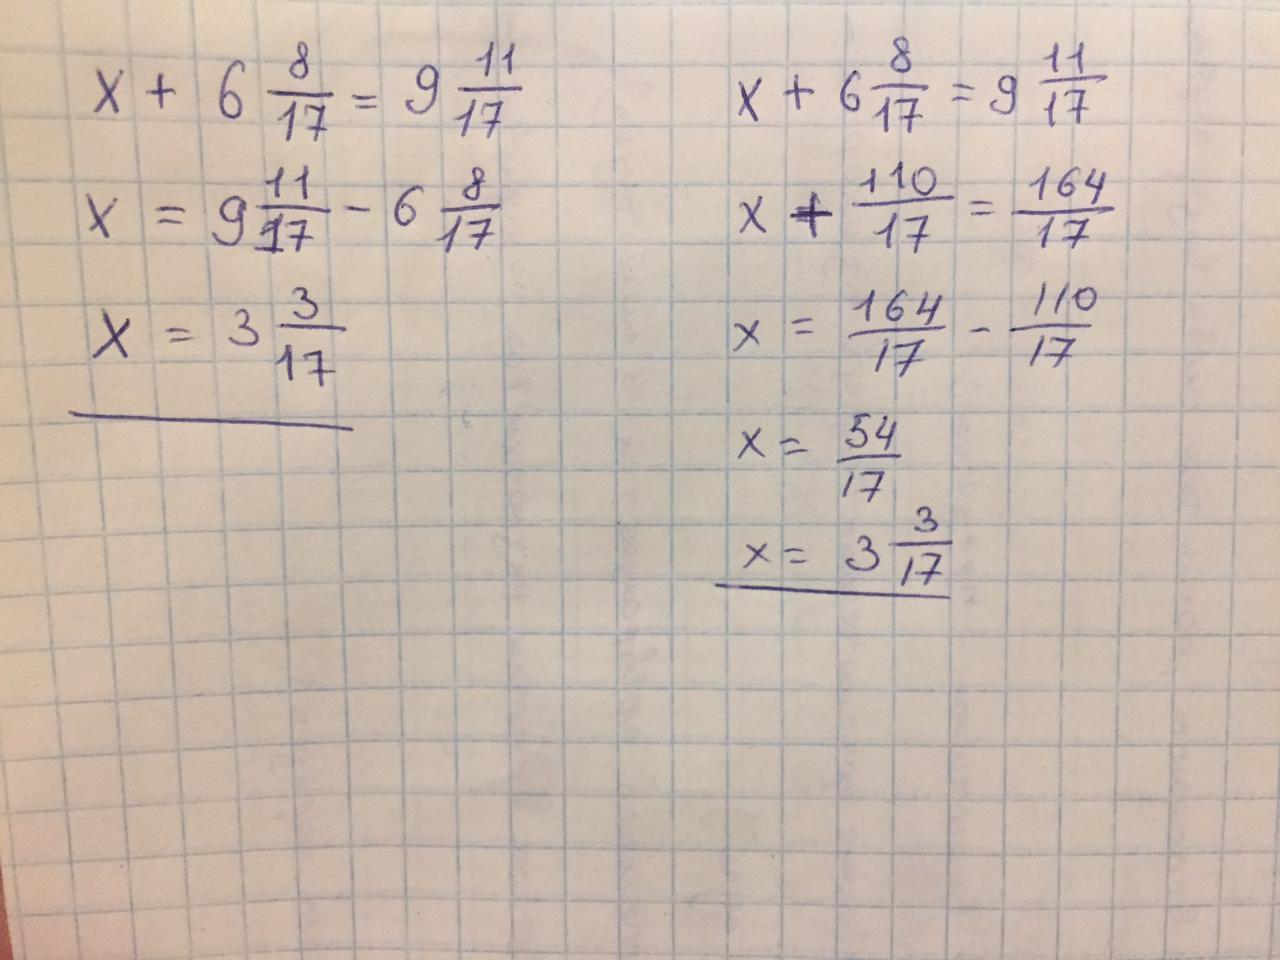 x + 6 8/17 = 9 11/17
x = 9 11/17 - 6 8/17
x = 3 3/17
x + 6 8/17 = 9 11/17
x + 110/17 = 164/17
x = 164/17 - 110/17
x = 54/17
x = 3 3/17